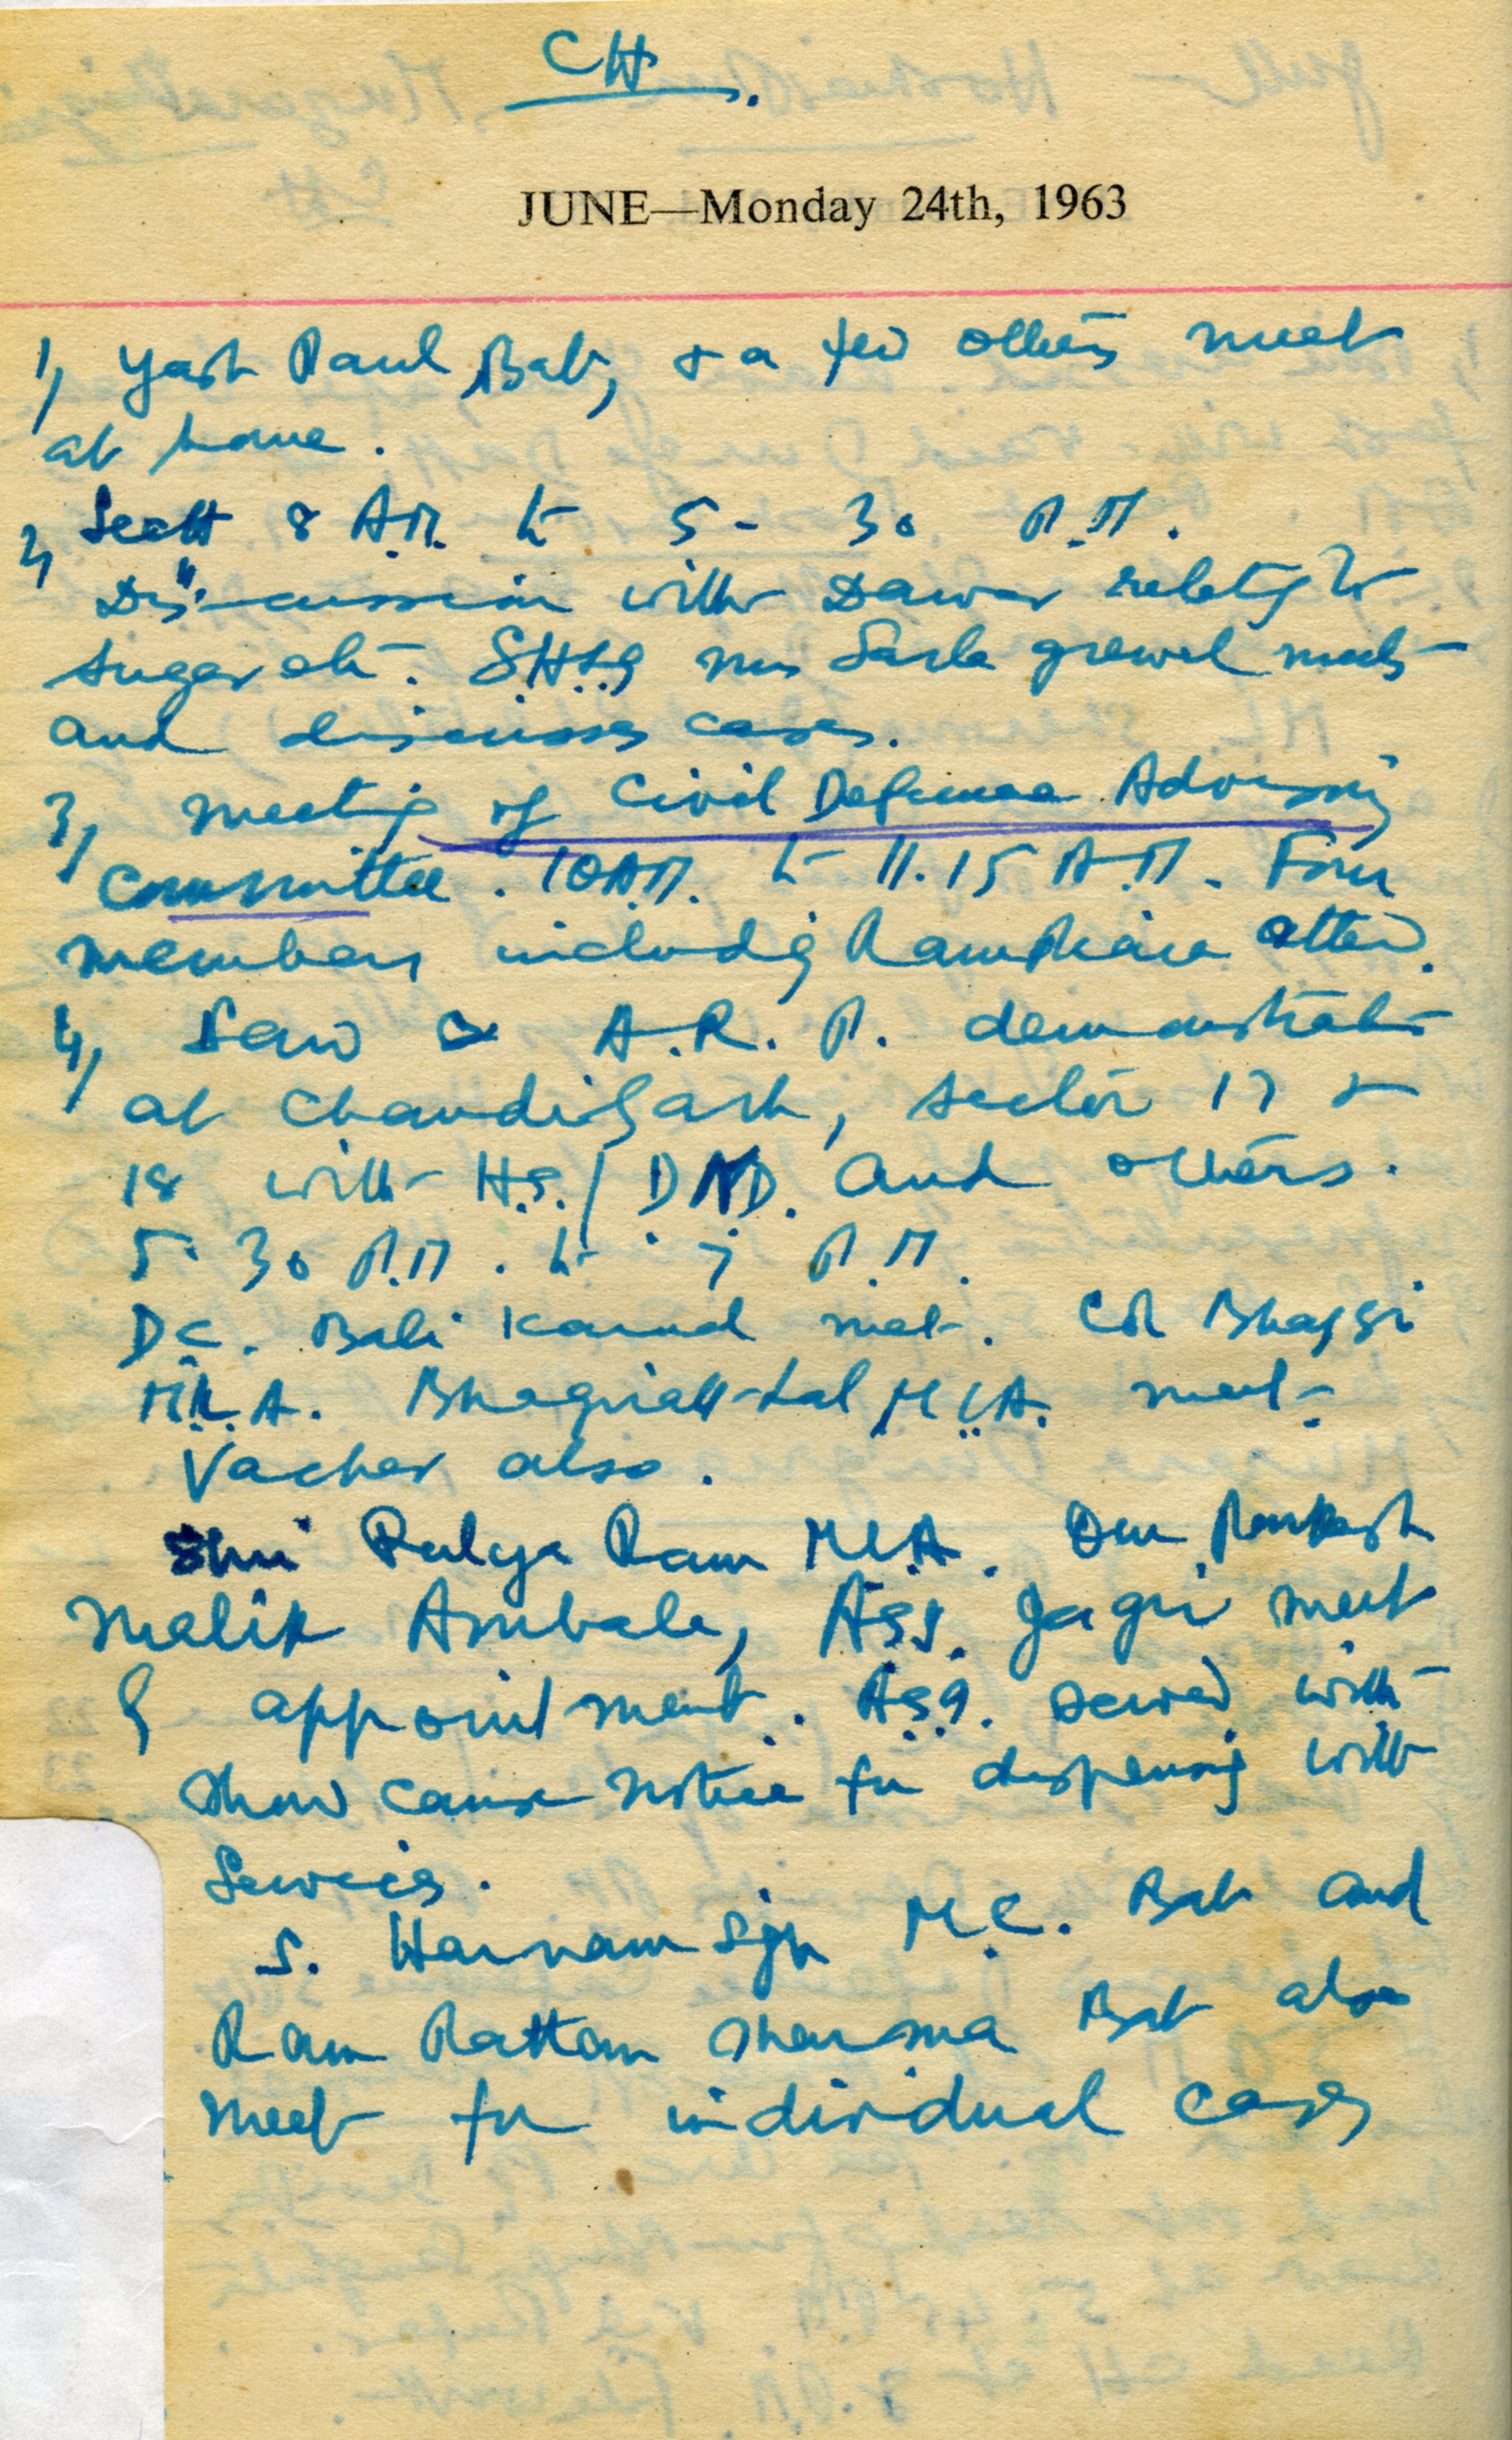 CH.
JUNE—Monday 24th, 1963
1, Yash Paul, Bat, & a few others meet
at home.
2, Sectt 8 A.M. to 5-30 P.M.
Discussion with Dawar relatg to
sugar etc. SHLG Mrs Sarla grewal meets
and discusses cases.
3, Meeting of Civil Defence Advisory
Committee. 10 A.M. to 11.15 A.M. Four
members includg Ram Piara attend.
4, Saw a A.R.P. demonstration
at Chandigarh, sector 17 &
18 with H.S./ and others.
5.30 P.M. to 7 P.M.
D.C. Bali Karnal met. Ch
M.L.A. Bhagirath Lal M.L.A. meet.
Vacher also.
Shri Ralya Ram M.L.A. Om Parkash
Malik Ambala, Jagri meet
appointment. served with
show cause notice for dispensing with
Services.
S. Harnam Sgh M.C. Bat and
Ram Rattan Sharma Bat also
meet for individual cases